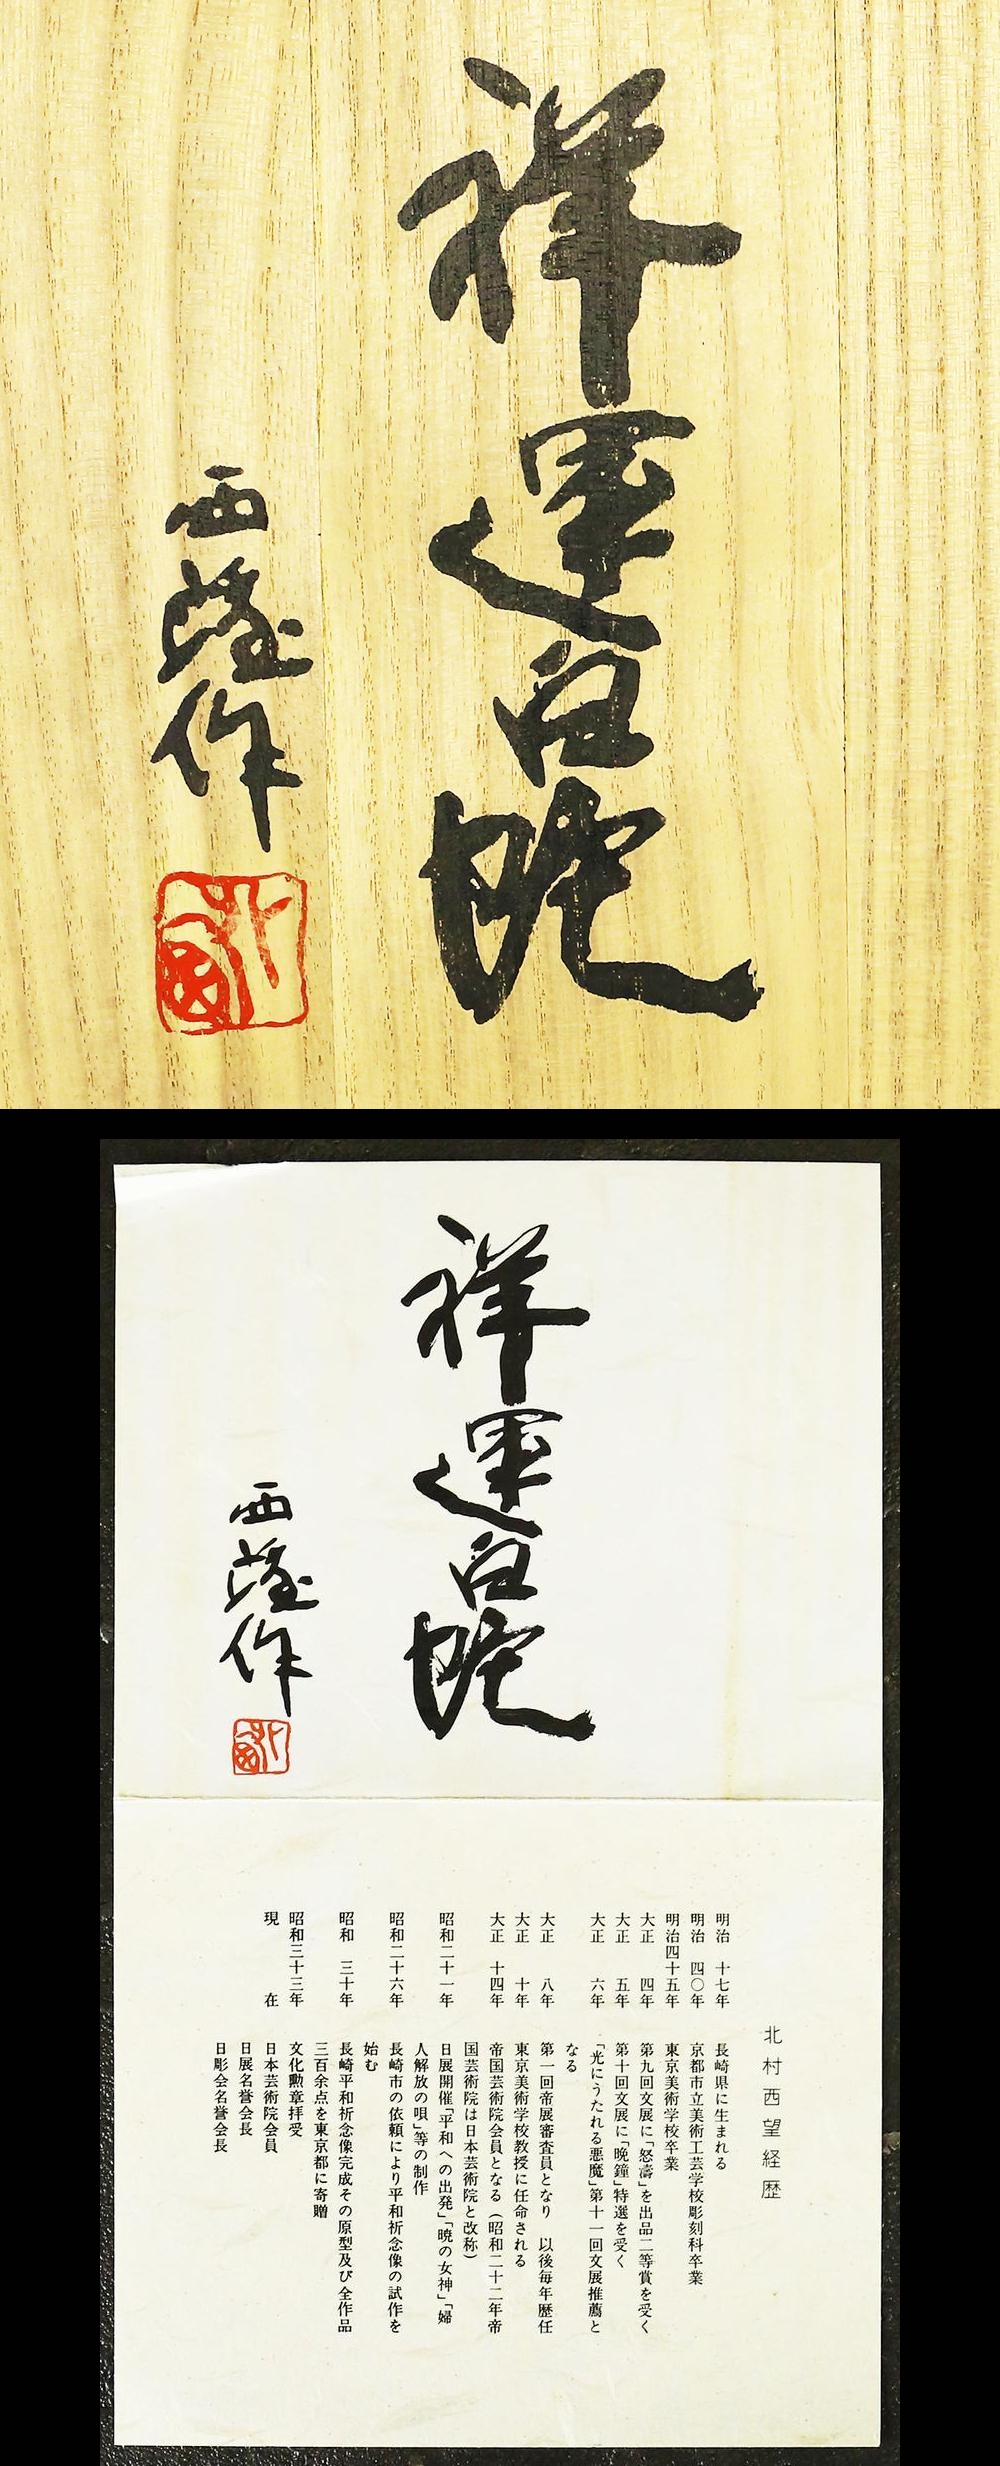 祥運白蛇
西望作
祥運白蛇
西望作
北村西望経歴
明治 十七年 長崎県に生まれる
明治 四〇年 京都市立美術工芸学校彫刻科卒業
明治四十五年 東京美術学校卒業
大正 四年 第九回文展に「怒濤」を出品二等賞を受く
大正 五年 第十回文展に「晩鐘」特選を受く
大正 六年 「光にうたれる悪魔」第十一回文展推薦と
なる
大正 八年 第一回帝展審査員となり 以後毎年歴任
大正 十年 東京美術学校教授に任命される
大正 十四年 帝国芸術院会員となる（昭和二十二年帝
国芸術院は日本芸術院と改称）
昭和二十一年 日展開催「平和への出発」「暁の女神」「婦
人解放の唄」等の制作
昭和二十六年 長崎市の依頼により平和祈念像の試作を
始む
昭和 三十年 長崎平和祈念像完成その原型及び全作品
三百余点を東京都に寄贈
昭和三十三年 文化勲章拝受
現在 日本芸術院会員
日展名誉会長
日彫会名誉会長